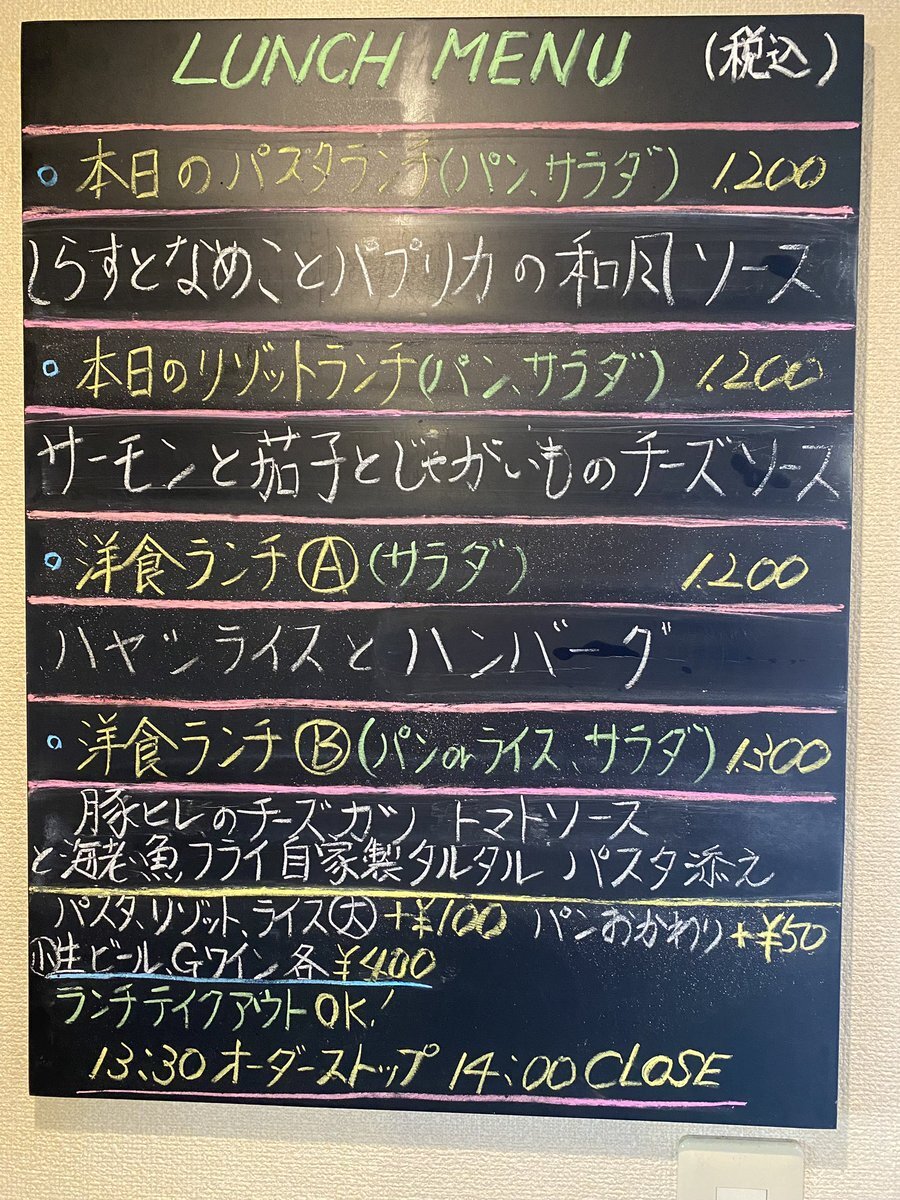 LUNCH MENU (税込)
本日のパスタランチ(パン、サラダ) 1.200
しらすとなめことパプリカの和風ソース
本日のリゾットランチ(パン、サラダ) 1.200
サーモンと茄子とじゃがいものチーズソース
洋食ランチⒶ(サラダ) 1.200
ハヤシライスとハンバーグ
洋食ランチⒷ(パンorライス、サラダ) 1.300
豚ヒレのチーズカツ トマトソース
と海老、魚フライ自家製タルタル パスタ添え
パスタ、リゾット、ライス㊅ +¥100 パンおかわり +¥50
㊤生ビール、Gワイン各¥400
ランチテイクアウトOK!
13:30オーダーストップ 14:00CLOSE